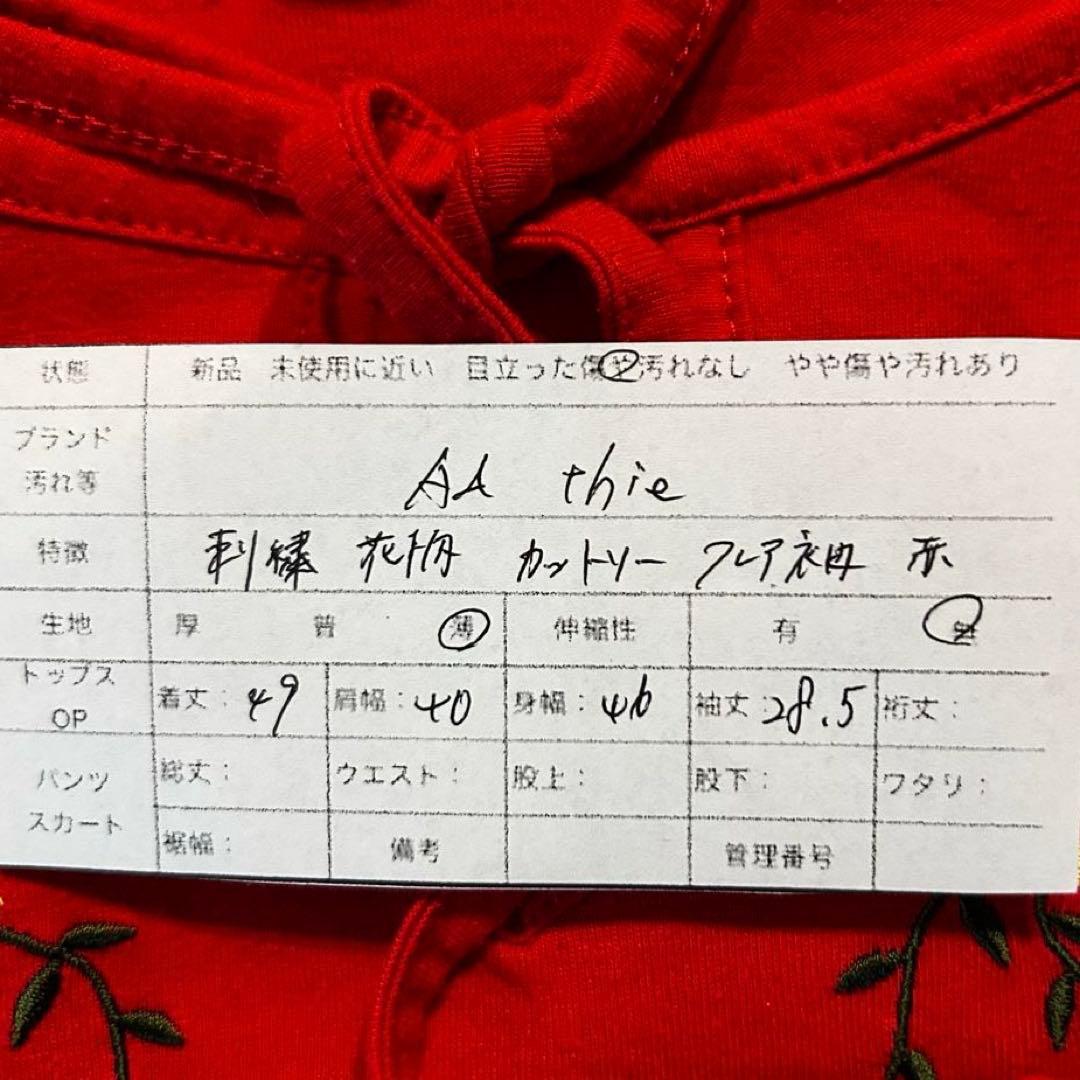 状態 新品 未使用に近い 目立った傷や汚れなし やや傷や汚れあり
ブランド
汚れ等
AA thie
特徴 刺繍 花柄 カットソー フレア袖 赤
生地 厚 普 薄 伸縮性 有 無
トップス
OP
着丈：49 肩幅：40 身幅：46 袖丈：28.5 裄丈：
パンツ
スカート
総丈： ウエスト： 股上： 股下： ワタリ：
裾幅： 備考 管理番号